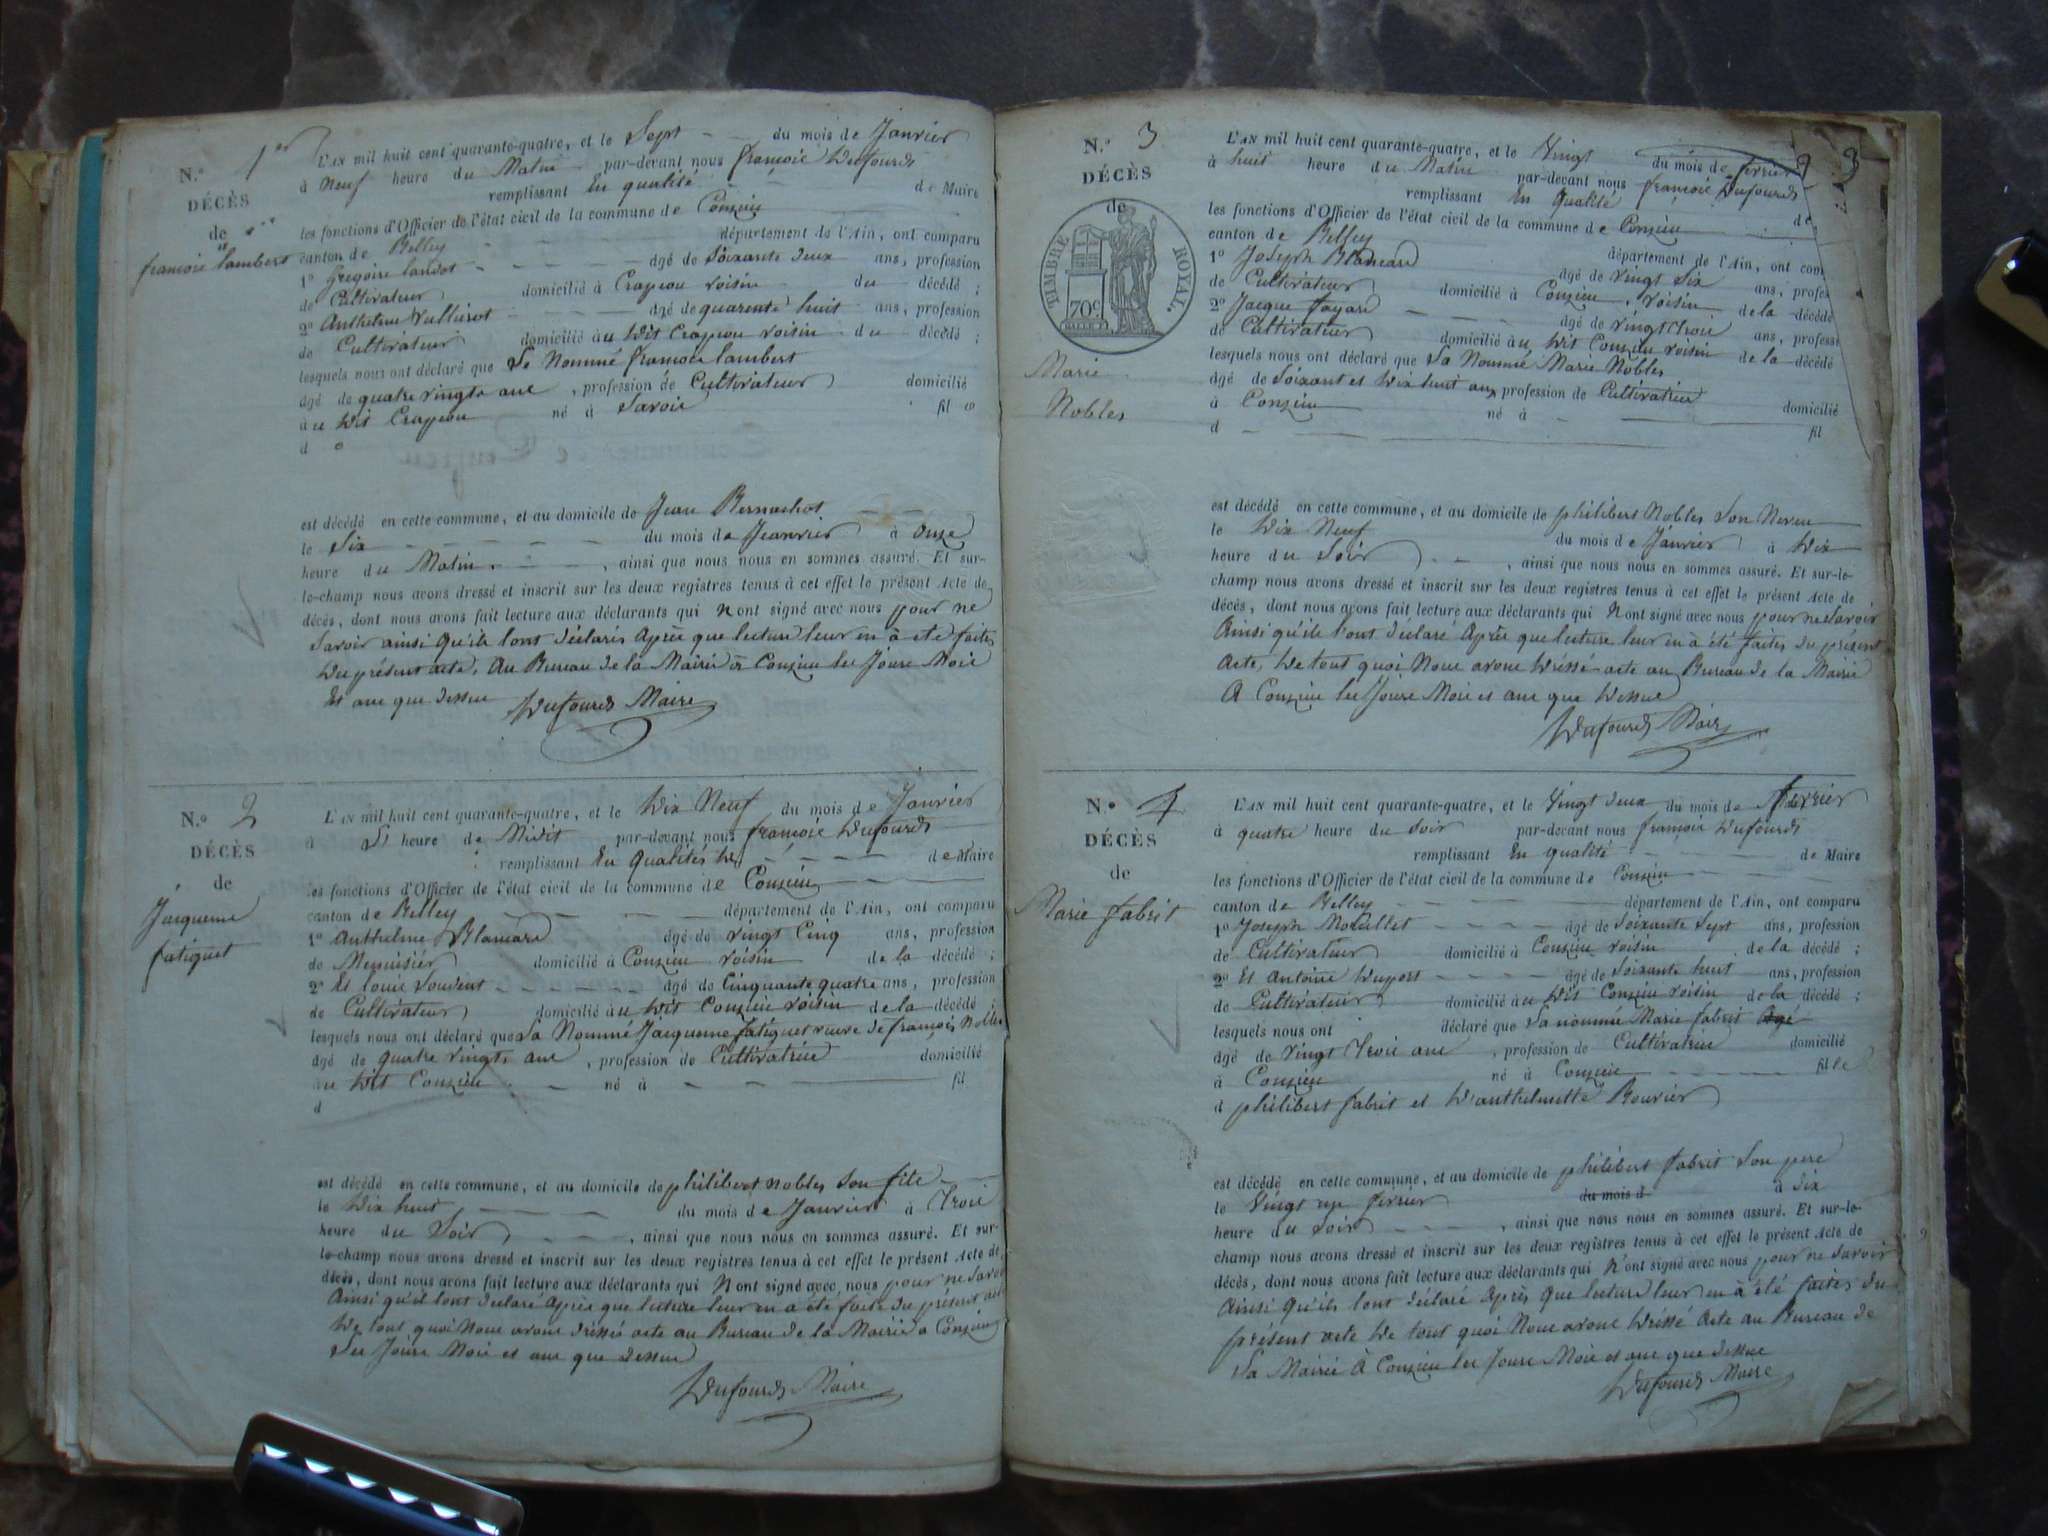 N.° 1er
DÉCÈS
de
françois lambert
L'AN mil huit cent quarante-quatre, et le Sept du mois de Janvier
à Neuf heure du Matin par-devant nous françois Dufourd
remplissant En qualité de Maire
les fonctions d'Officier de l'état civil de la commune de Conzieu
canton de Belley département de l'Ain, ont comparu
1° Gregoire âgé de Soixante deux ans, profession
de Cultivateur domicilié à Crapeou voisin du décédé ;
2° Anthelme Vullierot âgé de quarente huit ans, profession
de Cultivateur domicilié au dit Crapeou voisin du décédé ;
lesquels nous ont déclaré que Le Nommé françois lambert
âgé de quatre vingts ans, profession de Cultivateur domicilié
au dit Crapeou né à Savoie fil
d
est décédé en cette commune, et au domicile de Jean Bernachot
le Six du mois de Jeanvier à onze
heure du Matin, ainsi que nous nous en sommes assuré. Et sur-
le-champ nous avons dressé et inscrit sur les deux registres tenus à cet effet le présent Acte de
décès, dont nous avons fait lecture aux déclarants qui n ont signé avec nous pour ne
Savoir ainsi qu'ils lont déclarés Après que lecture leur en à eté faites
du présent acte, Au Bureau de la Mairie à Conzieu les Jours Mois
Et ans que dessus Dufourd Maire
N.° 2
DÉCÈS
de
Jacqueme
fatiguet
L'AN mil huit cent quarante-quatre, et le dix Neuf du mois de Janvier
à heure de Midit par-devant nous françois Dufourd
remplissant En qualités de Maire
les fonctions d'Officier de l'état civil de la commune de Conzieu
canton de Belley département de l'Ain, ont comparu
1° Anthelme Blanard âgé de vingt Cinq ans, profession
de Menuisier domicilié à Conzieu voisin de la décédé ;
2° Et louis Soudent âgé de Cinquante quatre ans, profession
de Cultivateur domicilié au dit Conzieu voisin de la décédé ;
lesquels nous ont déclaré que La Nommé Jacquemе fatiguet veuve de françois Nobles
âgé de quatre vingts ans, profession de Cultivatrice domicilié
au dit Conzieu né à fil
d
est décédé en cette commune, et au domicile de philibert nobles son fils
le dix huit du mois de Janvier à Trois
heure du Soir, ainsi que nous nous en sommes assuré. Et sur-
le-champ nous avons dressé et inscrit sur les deux registres tenus à cet effet le présent Acte de
décès, dont nous avons fait lecture aux déclarants qui N ont signé avec nous pour ne Savoir
Ainsi qu'il lont déclaré Après que lecture leur en a eté faite du présent acte
De tout quoi Nous avons dréssé acte au Bureau de la Mairie à Conzieu
Les Jours Mois et ans que dessus
Dufourd Maire
N.° 3
DÉCÈS
de
TIMBRE ROYAL.
70c
Marie
Nobles
9 3
L'AN mil huit cent quarante-quatre, et le Vingt du mois de
à huit heure du Matin par-devant nous françois Dufourd
remplissant En qualité de
les fonctions d'Officier de l'état civil de la commune de Conzieu
canton de Belley département de l'Ain, ont com
1° Joseph Blanard âgé de vingt Six ans, profes
de Cultivateur domicilié à Conzieu voisin de la décédé
2° Jacque fayard âgé de vingt trois ans, profess
de Cultivateur domicilié au dit Conzieu voisin de la décédé
lesquels nous ont déclaré que La Nommé Marie Nobles
âgé de Soixant et dix huit ans profession de Cultivatrice domicilié
à Conzieu né à fil
d
est décédé en cette commune, et au domicile de philibert Nobles Son Neveu
le dix Neuf du mois de Janvier à dix
heure du Soir, ainsi que nous nous en sommes assuré. Et sur-le-
champ nous avons dressé et inscrit sur les deux registres tenus à cet effet le présent Acte de
décès, dont nous avons fait lecture aux déclarants qui N ont signé avec nous pour ne Savoir
Ainsi qu'ils l'ont déclaré Après que lecture leur en à été faites du présent
Acte, De tout quoi Nous avons dréssé acte au Bureau de la Mairie
A Conzieu les Jours Mois et ans que dessus
Dufourd Maire
N.° 4
DÉCÈS
de
Marie fabrit
L'AN mil huit cent quarante-quatre, et le Vingt deux du mois de fevrier
à quatre heure du Soir par-devant nous françois Dufourd
remplissant En qualité de Maire
les fonctions d'Officier de l'état civil de la commune de Conzieu
canton de Belley département de l'Ain, ont comparu
1° Joseph âgé de Soixante Sept ans, profession
de Cultivateur domicilié à Conzieu voisin de la décédé ;
2° Et Antoine Duport âgé de Soixante huit ans, profession
de Cultivateur domicilié au dit Conzieu voisin de la décédé ;
lesquels nous ont déclaré que La nommée Marie fabrit Agé
âgé de vingt Trois ans, profession de Cultivatrice domicilié
à Conzieu né à Conzieu fille
d philibert fabrit et d'anthelmette Bouvier
est décédé en cette commune, et au domicile de philibert fabrit Son pere
le Vingt un fevrier du mois d à Six
heure du soir, ainsi que nous nous en sommes assuré. Et sur-le-
champ nous avons dressé et inscrit sur les deux registres tenus à cet effet le présent Acte de
décès, dont nous avons fait lecture aux déclarants qui N'ont signé avec nous pour ne Savoir
Ainsi qu'ils lont déclaré Après que lecture leur en à été faites du
présent acte De tout quoi Nous avons dréssé Acte au Bureau de
La Mairie à Conzieu les Jours Mois et ans que dessus
Dufourd Maire